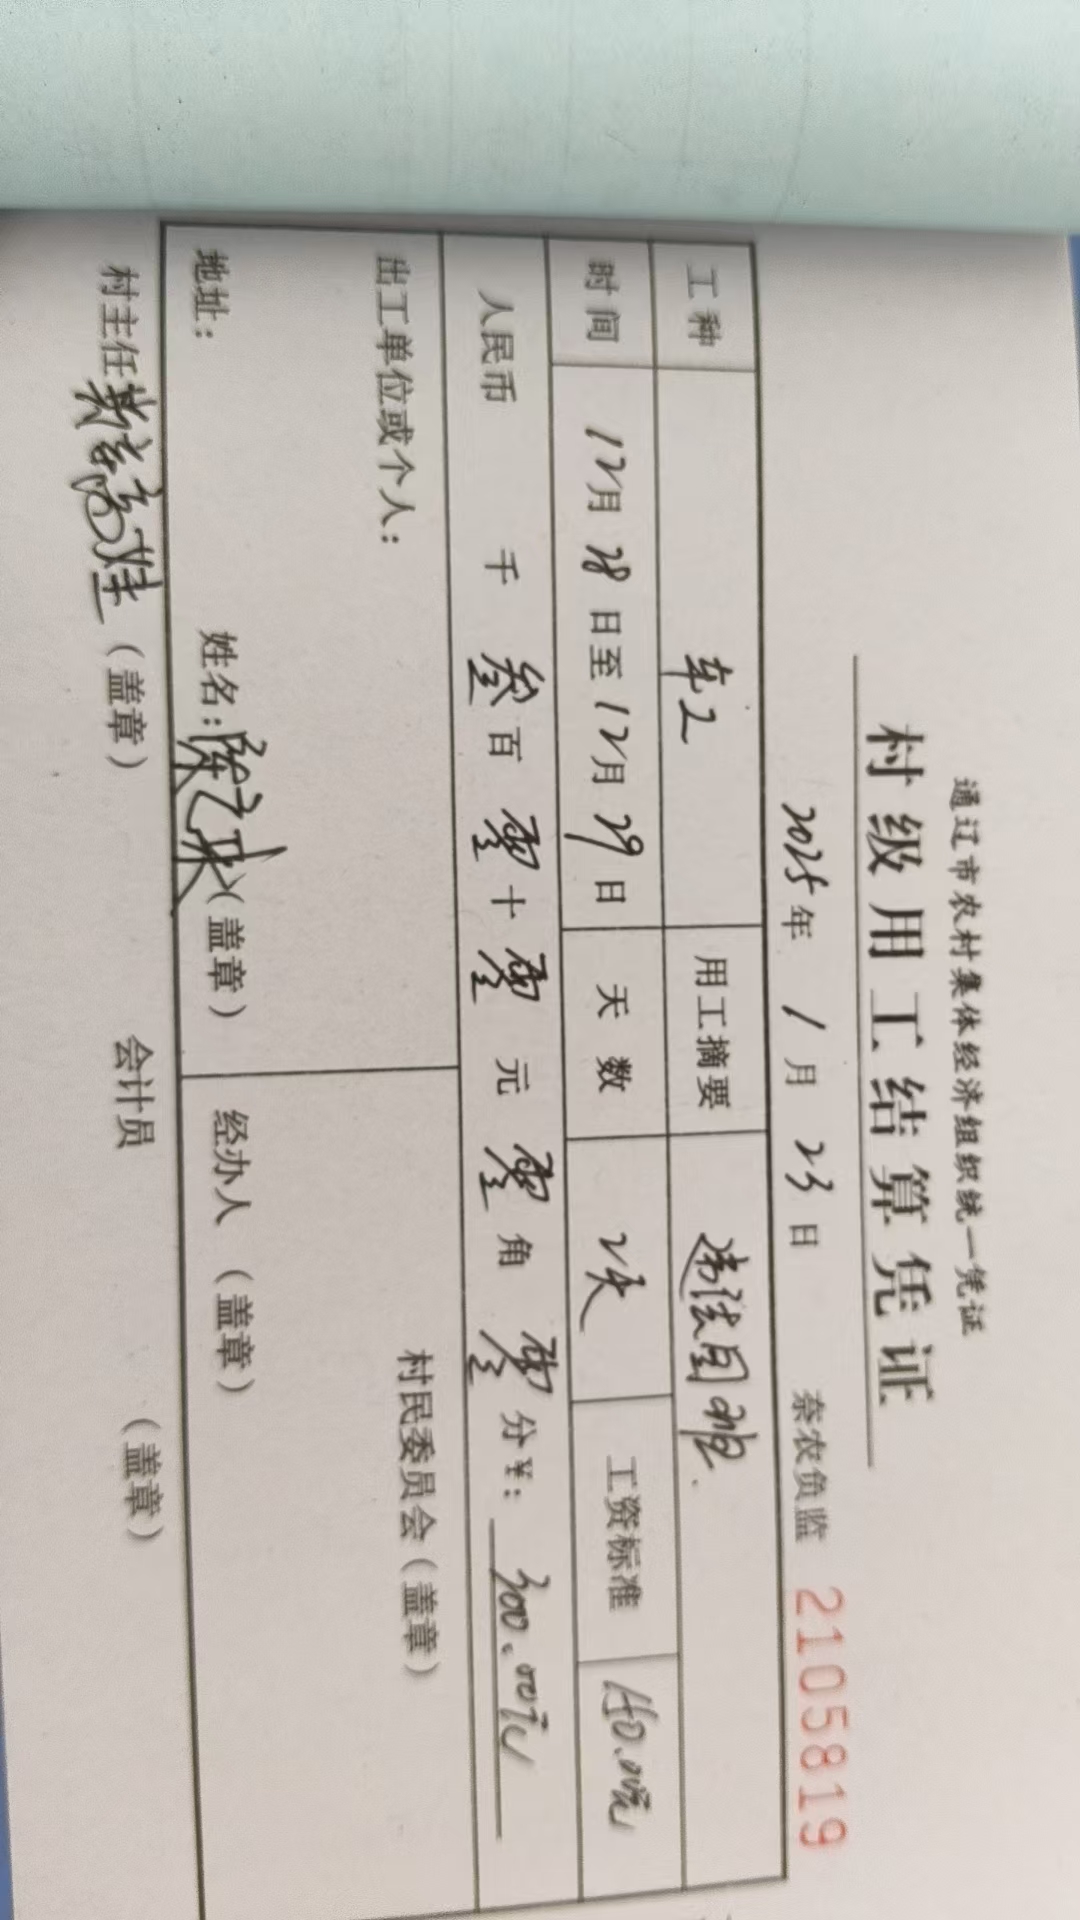 通辽市农村集体经济组织统一凭证
村级用工结算凭证
2025年 1月 23日 奈农负监 2105819
工种 车工 用工摘要
时间 12月28日至12月29日 天数 2天 工资标准 150.00元
人民币 千 叁百 零十 零元 零角 零分 ¥: 300.00元
出工单位或个人: 村民委员会(盖章)
地址: 姓名: (盖章) 经办人 (盖章)
村主任 (盖章) 会计员 (盖章)